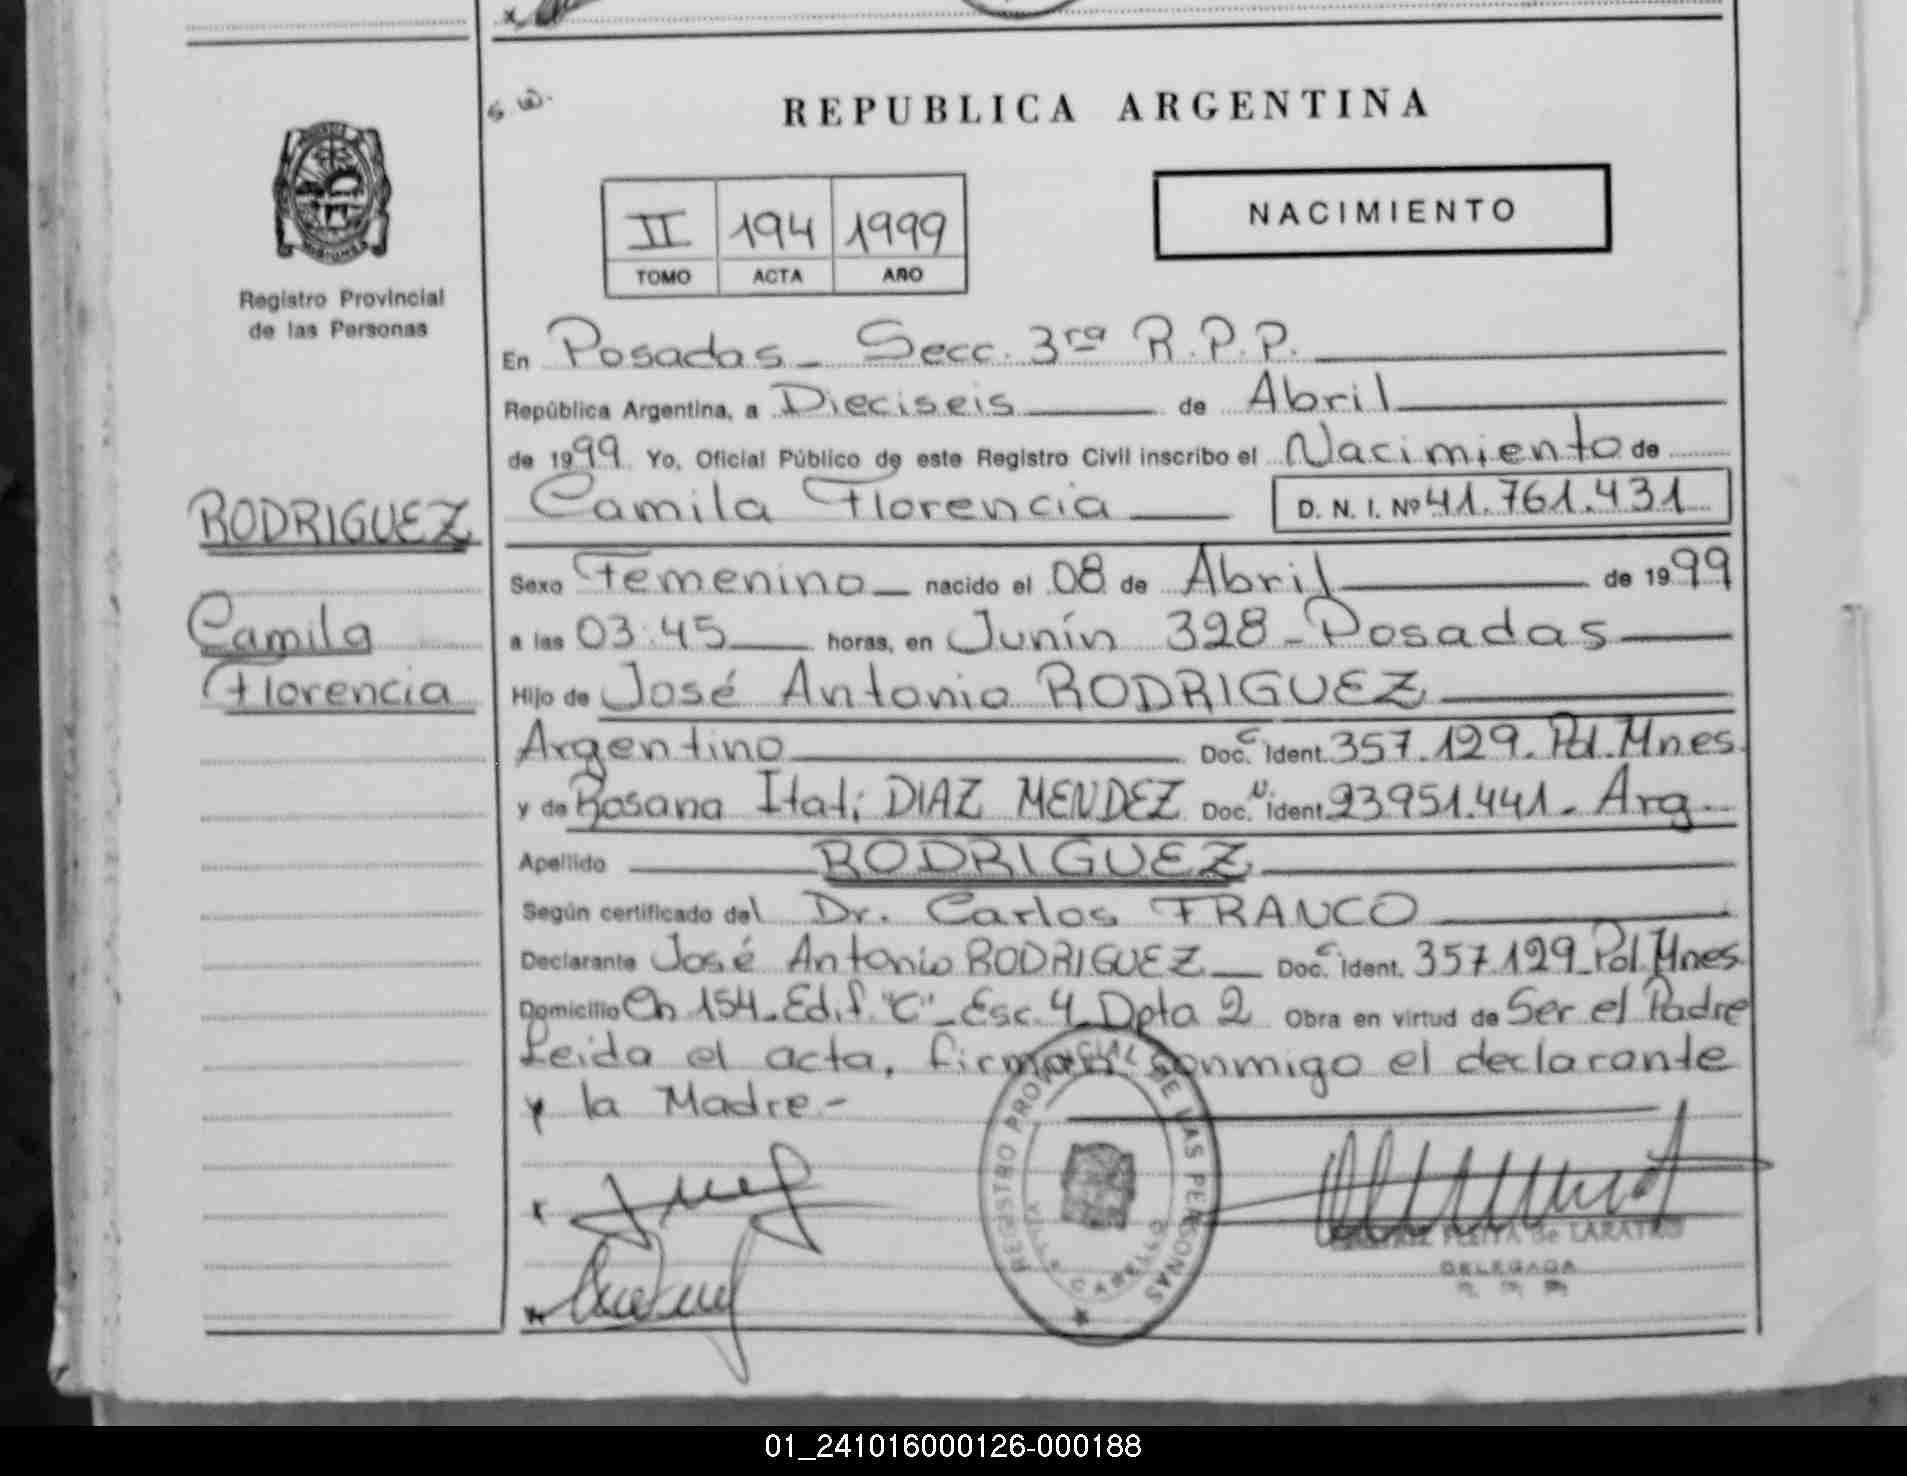 S. W.
REPUBLICA ARGENTINA
II 194 1999
TOMO ACTA AÑO
NACIMIENTO
Registro Provincial
de las Personas
En Posadas - Secc. 3ra R.P.P.
República Argentina, a Dieciseis de Abril
de 1999 Yo, Oficial Público de este Registro Civil inscribo el Nacimiento de
Camila Florencia D. N. I. Nº 41.761.431
RODRIGUEZ
Camila
Florencia
Sexo Femenino nacido el 08 de Abril de 1999
a las 03:45 horas, en Junín 328 - Posadas
Hijo de José Antonio RODRIGUEZ
Argentino Doc. C. Ident. 357.129. Pol. Mnes.
y de Rosana Itatí DIAZ MENDEZ Doc. N. Ident 93951.441 - Arg.
Apellido RODRIGUEZ
Según certificado del Dr. Carlos FRANCO
Declarante José Antonio RODRIGUEZ Doc. C. Ident. 357.129 Pol. Mnes.
Domicilio Ch 154 - Edif. "C" - Esc. 4 Dpta 2 Obra en virtud de Ser el Padre
Leida el acta, firman conmigo el declarante
y la Madre -
REGISTRO PROVINCIAL DE LAS PERSONAS
VILLA CABELLO
de LARATRO
DELEGADA
01_241016000126-000188